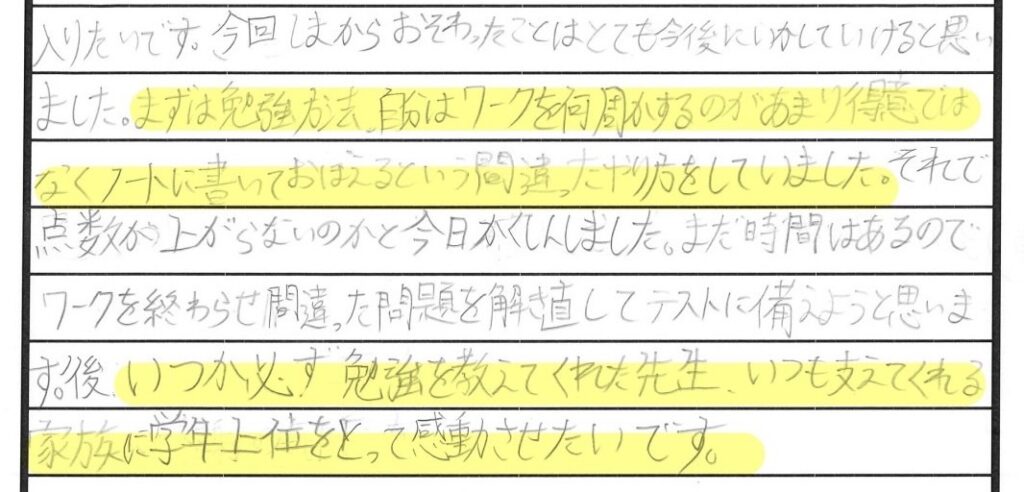 入りたいです。今回しまからおそわったことはとても今後にいかしていけると思い
ました。まずは勉強方法、自分はワークを何周かするのがあまり得意では
なくノートに書いておぼえるという間違ったやり方をしていました。それで
点数が上がらないのかと今日かくしんしました。まだ時間はあるので
ワークを終わらせ間違った問題を解き直してテストに備えようと思いま
す。後、いつか必ず勉強を教えてくれた先生、いつも支えてくれる
家族に学年上位をとって感動させたいです。